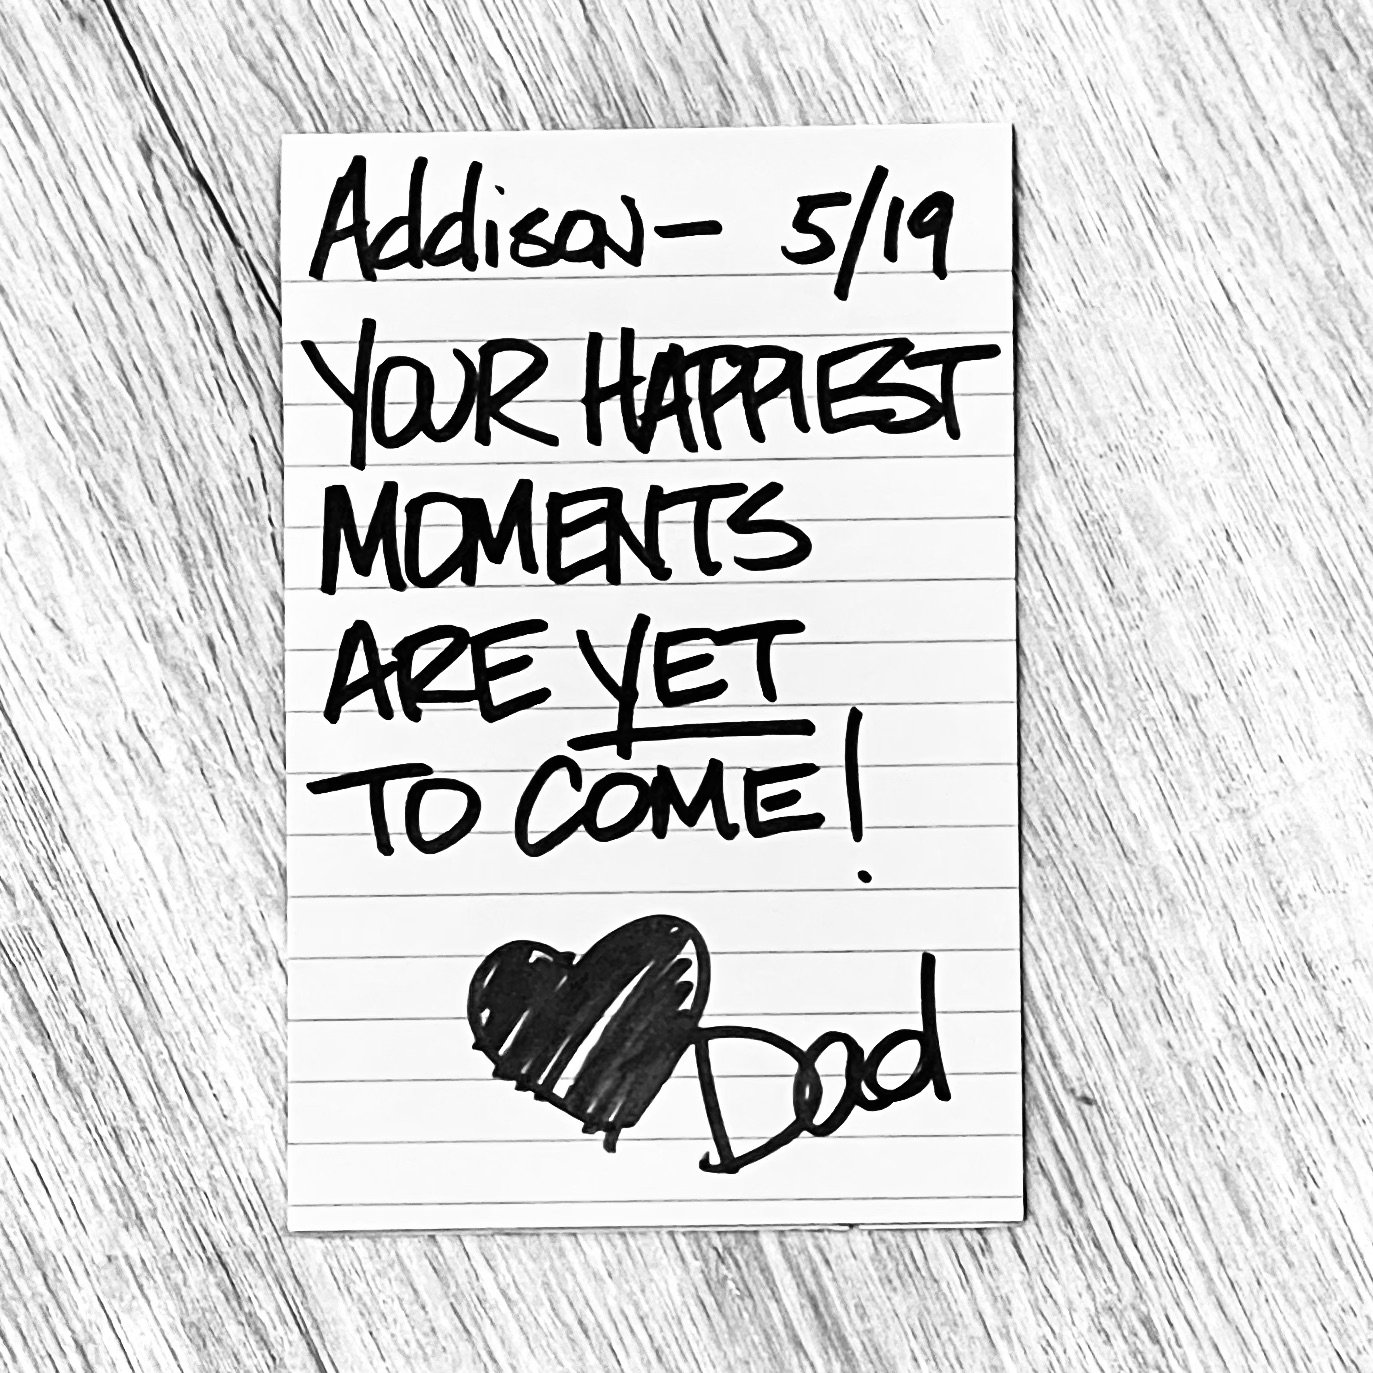 Addison— 5/19
YOUR HAPPIEST
MOMENTS
ARE YET
TO COME!
Dad